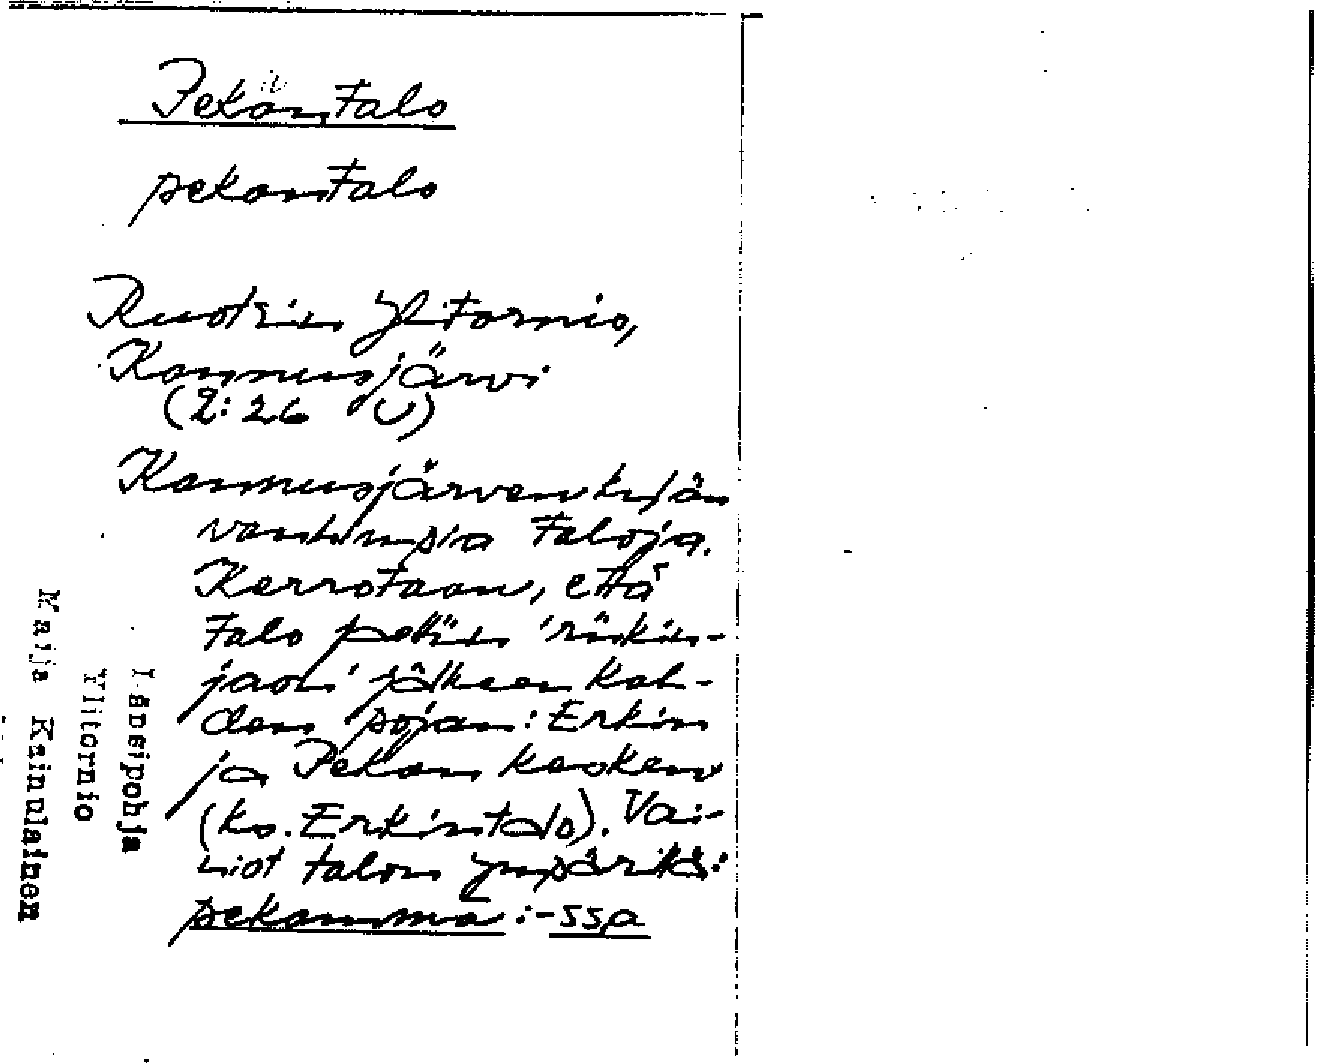 Pekantalo
pekantalo
Ruotsin Ylitornio,
Kannusjärvi
(2:26 U)
Kannusjärven kylän
vanhimpia taloja.
Kerrotaan, että
talo pettiin 'riikin-
jaon' jälkeen kah-
den pojan: Erkin
ja Pekan kesken
(ks. Erkintalo). Vai-
niot talon ympärikä:
pekanma :-ssa
Länsipohja
Ylitornio
Maija Kainulainen